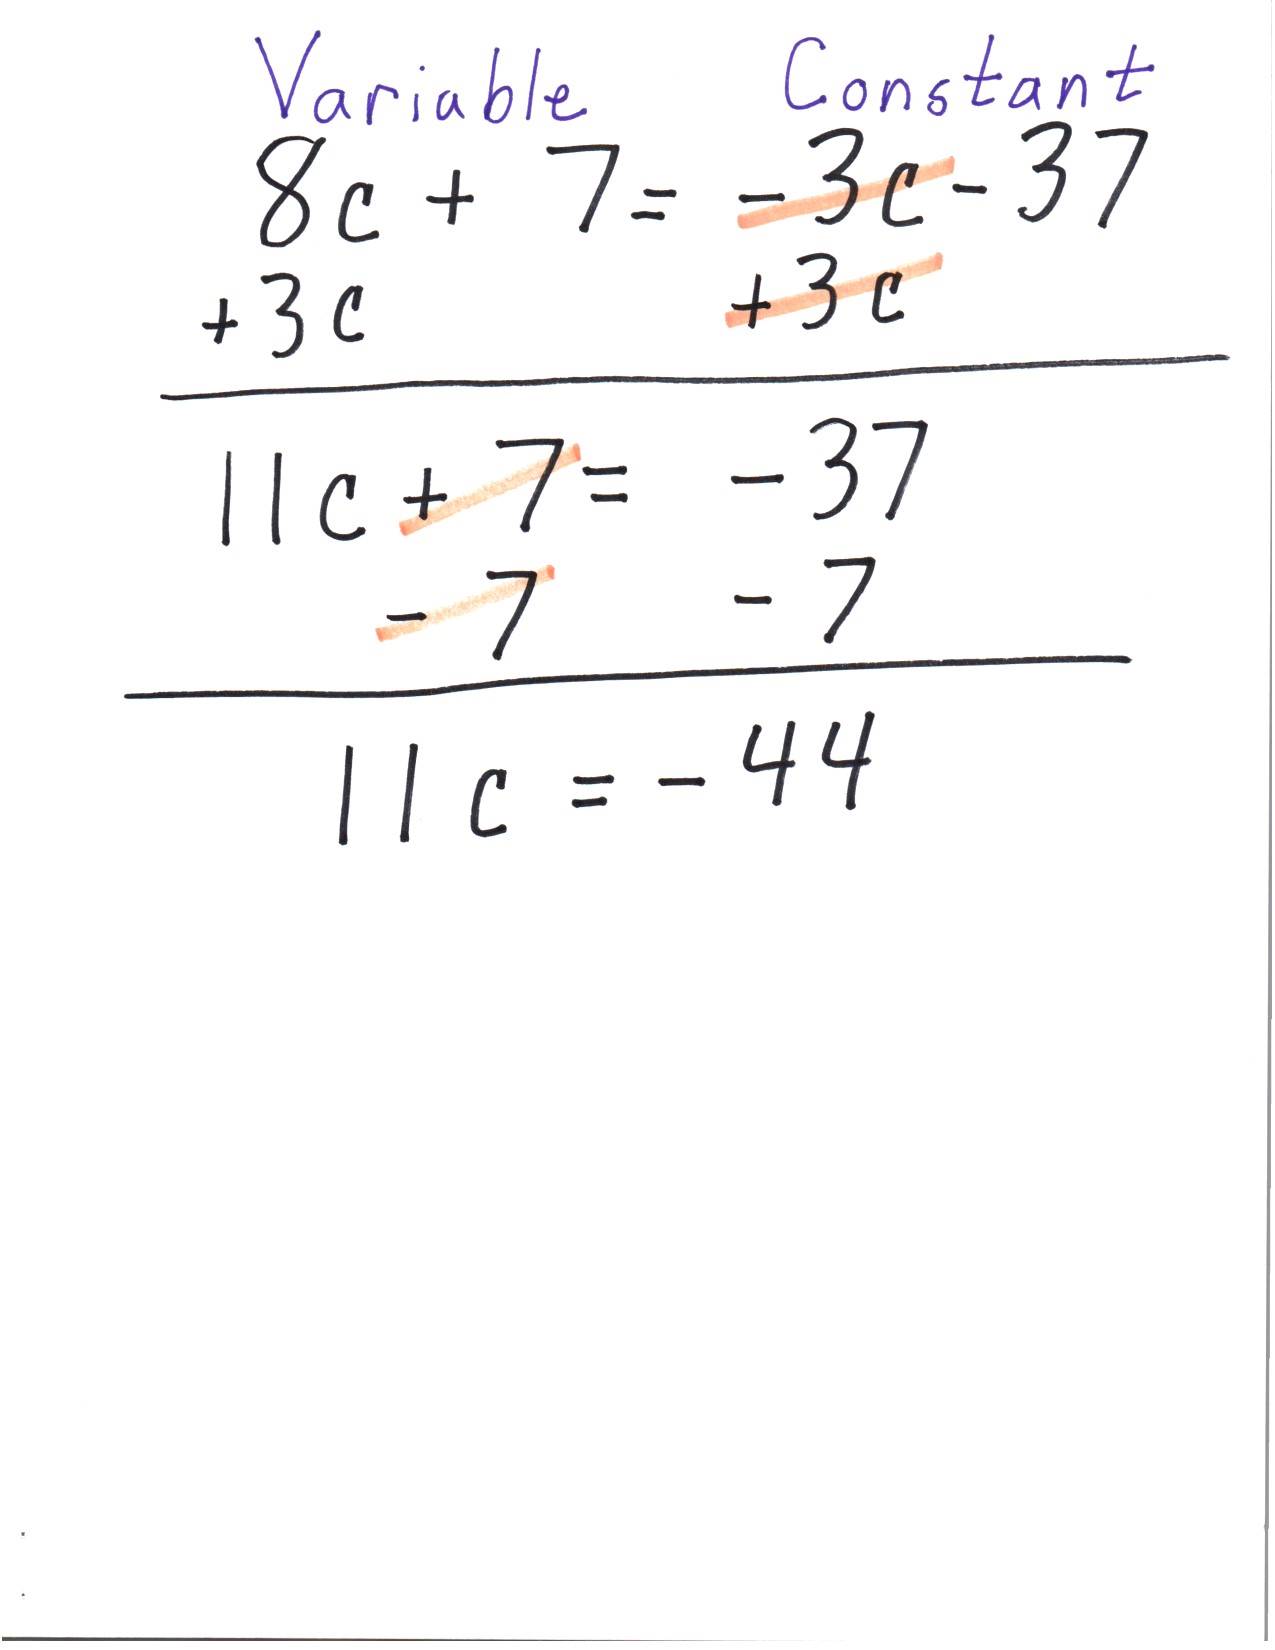 Variable Constant
8c + 7 = -3c - 37
+3c +3c
11c + 7 = -37
- 7 - 7
11c = -44